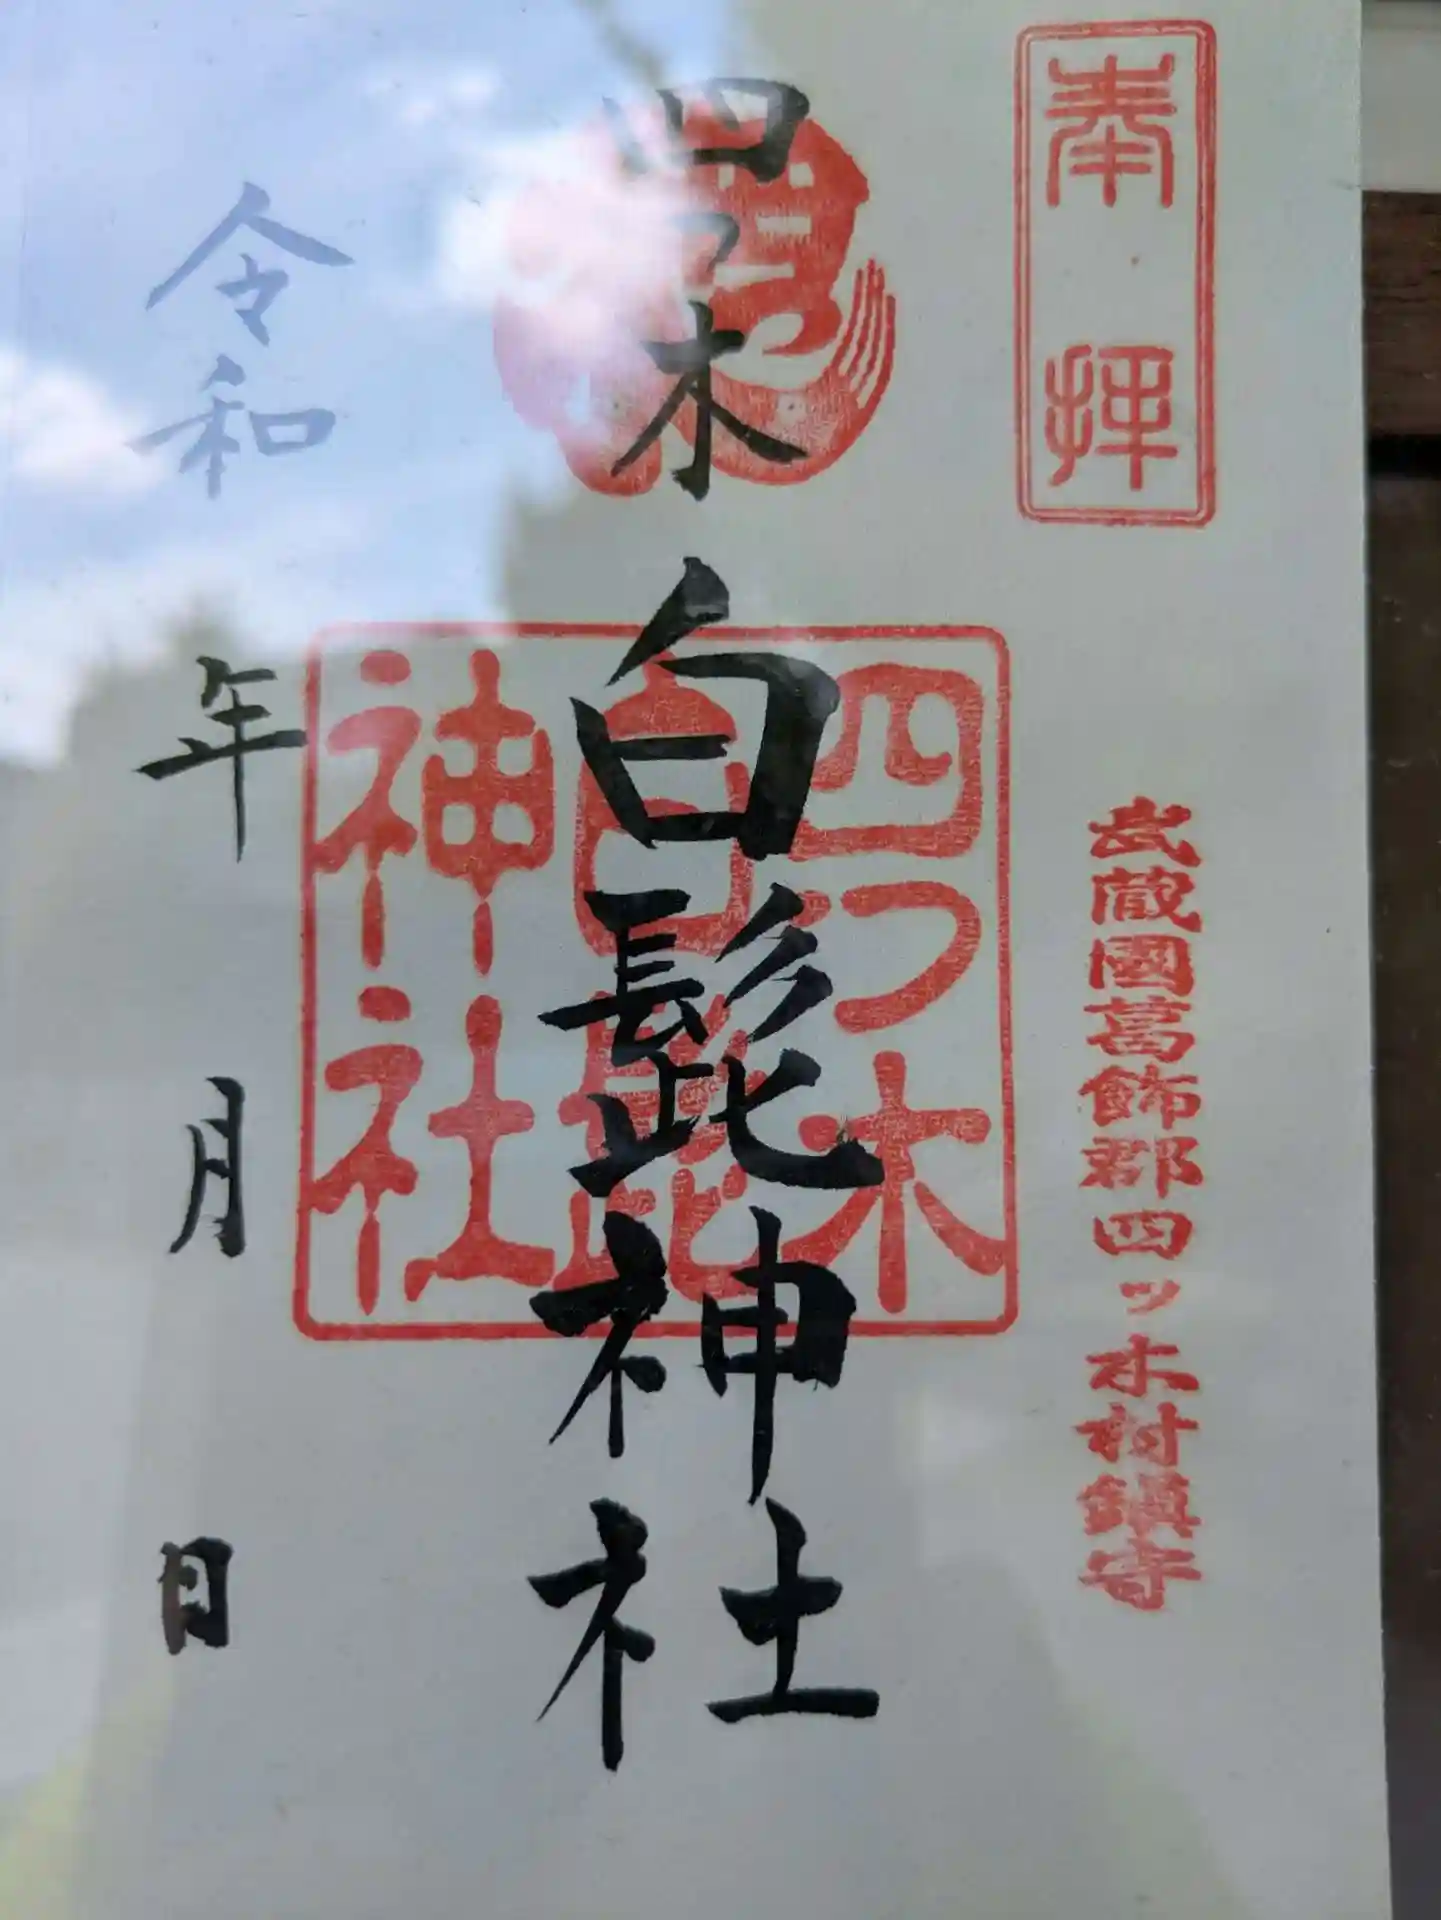 奉拝
武蔵國葛飾郡四ッ木村鎮守
四つ木
白髭神社
四つ木
白髭
神社
令和
年
月
日